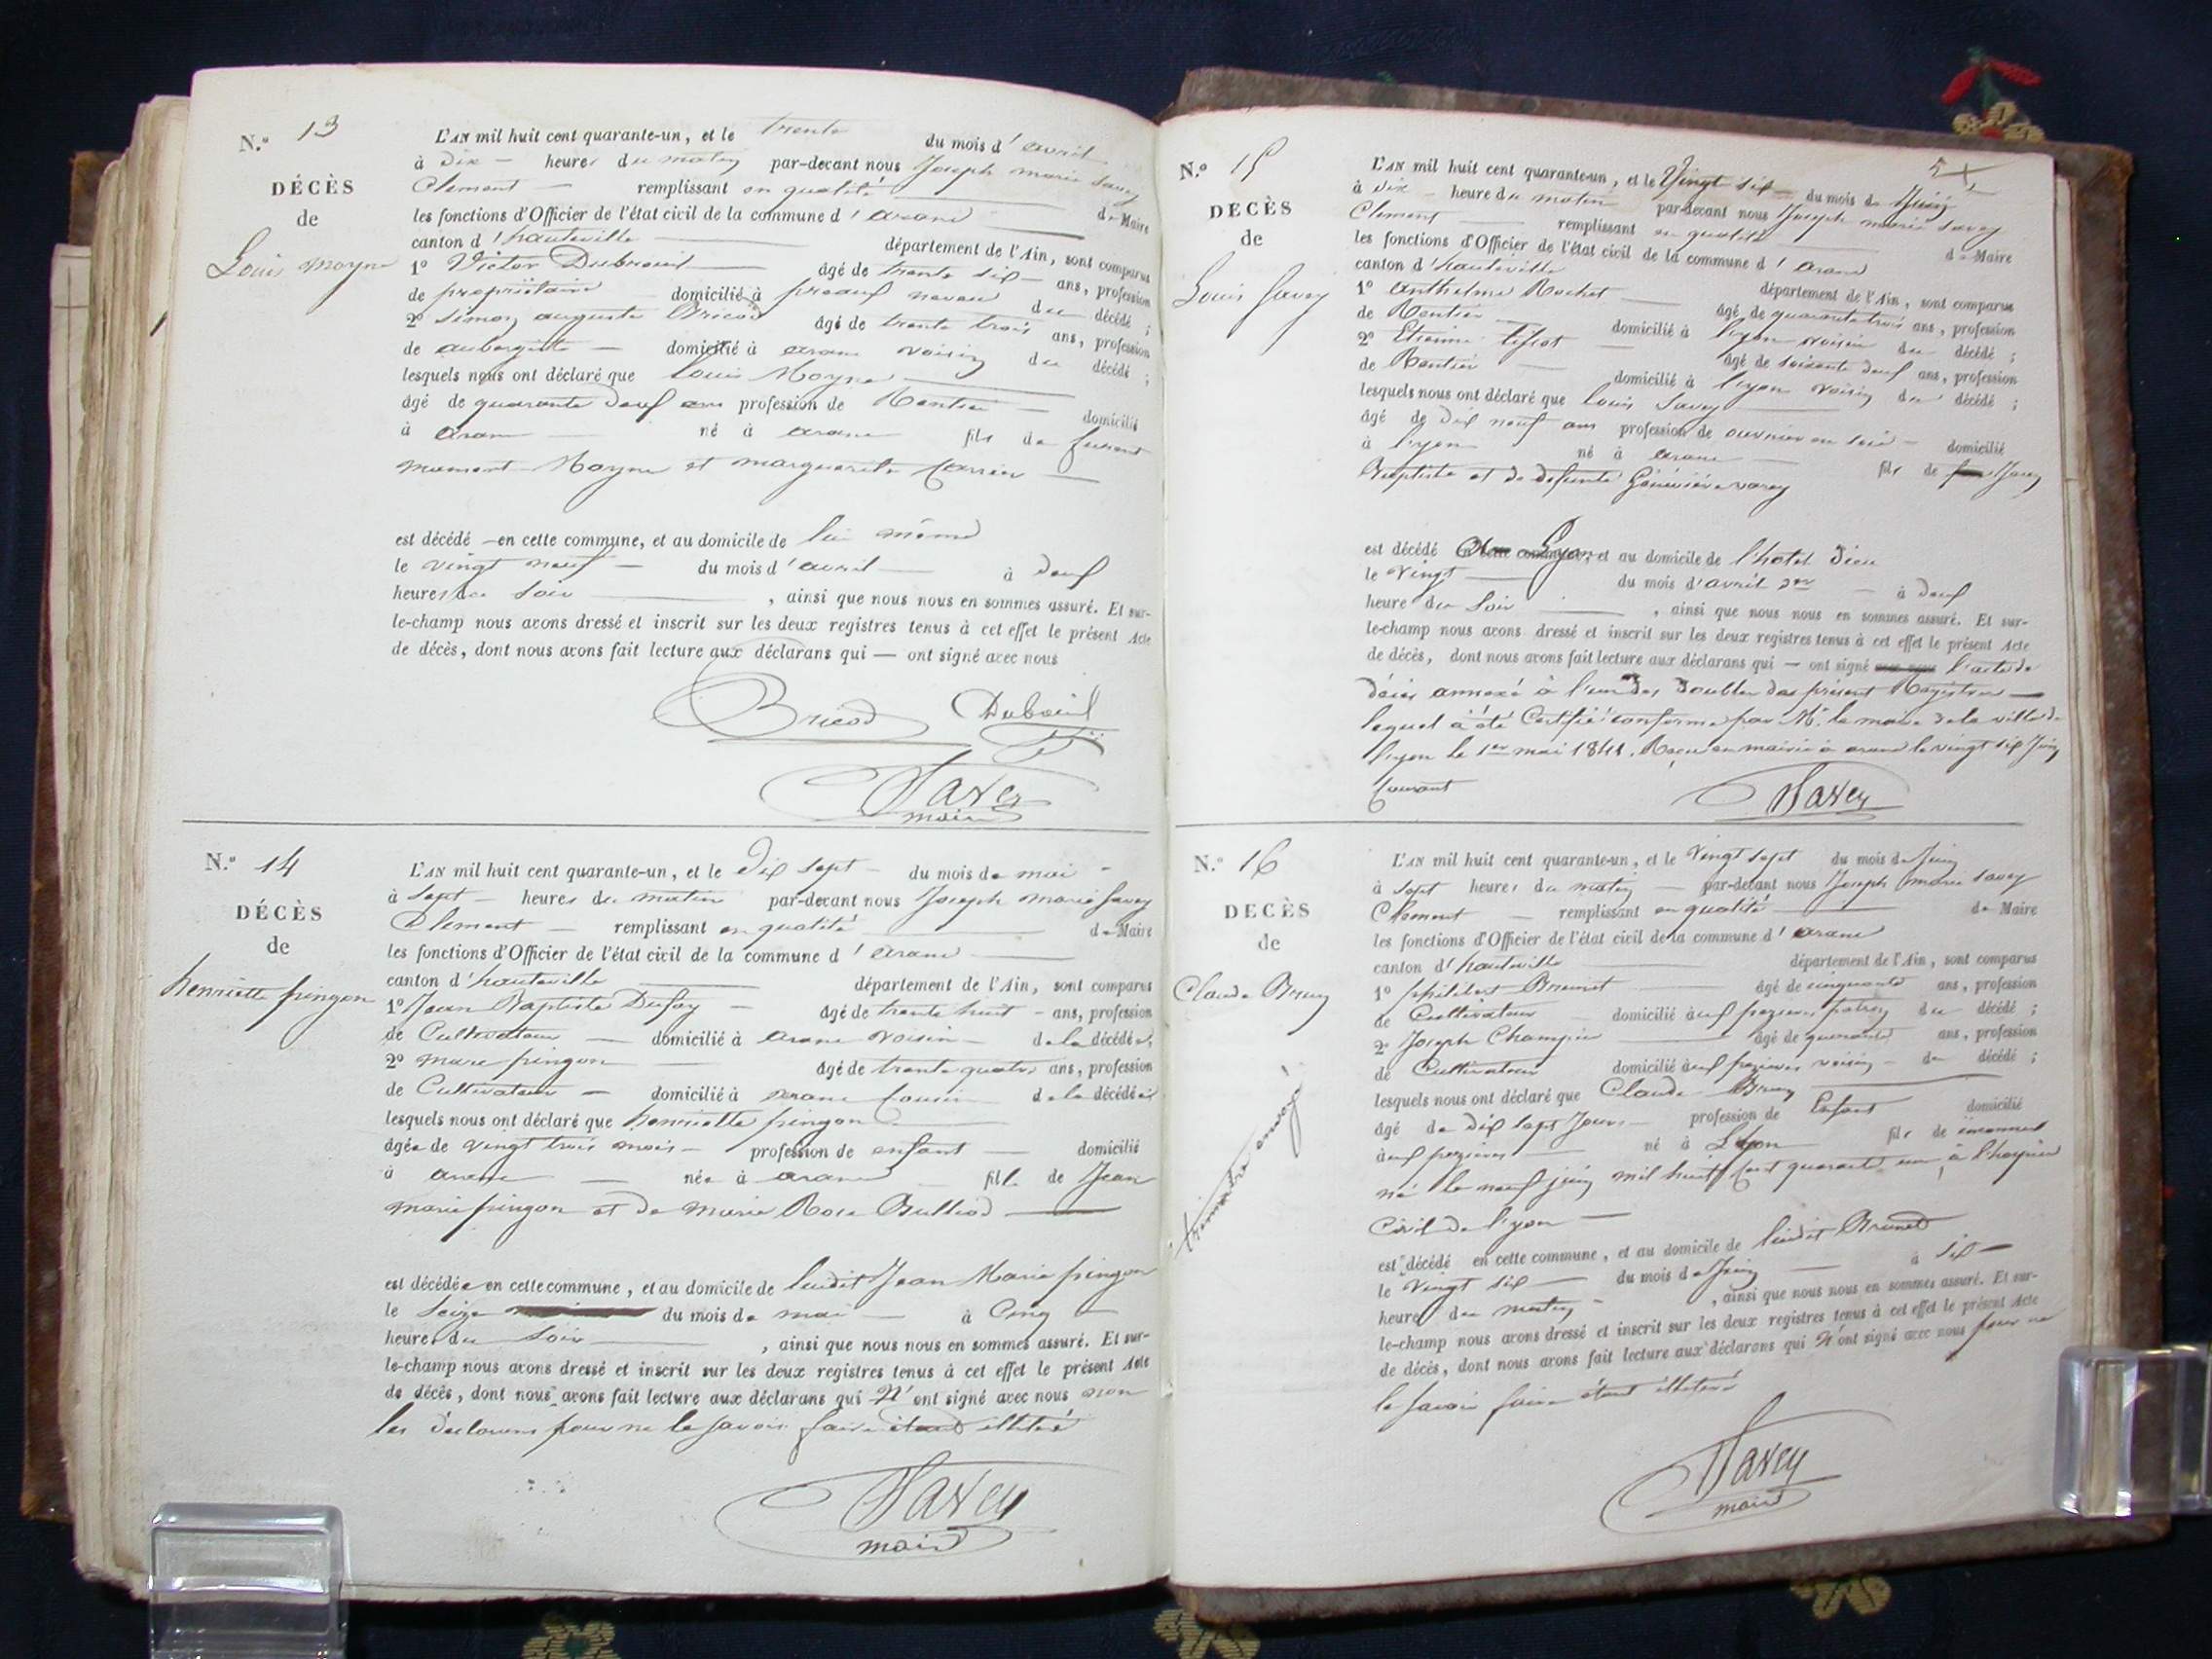 N.° 13
DÉCÈS
de
Louis Moyne
L'AN mil huit cent quarante-un, et le trente du mois d'avril
à dix heures du matin par-devant nous Joseph marie Savey
Clement remplissant en qualité de Maire
les fonctions d'Officier de l'état civil de la commune d'arane
canton d'hauteville département de l'Ain, sont comparus
1° Victor Dubreuil âgé de trente six ans, profession
de propriétaire domicilié à neveu du décédé ;
2° Simon auguste Bricod âgé de trente trois ans, profession
de aubergiste domicilié à arane voisin du décédé ;
lesquels nous ont déclaré que Louis Moyne
âgé de quarante deux ans profession de Rentier domicilié
à aran né à arane fils de
Moyne et marguerite Carrier
est décédé en cette commune, et au domicile de lui même
le vingt neuf du mois d'avril à deux
heures du soir, ainsi que nous nous en sommes assuré. Et sur-
le-champ nous avons dressé et inscrit sur les deux registres tenus à cet effet le présent Acte
de décès, dont nous avons fait lecture aux déclarans qui — ont signé avec nous
Bricod Dubreuil
Savey
maire
N.° 14
DÉCÈS
de
henriette pingon
L'AN mil huit cent quarante-un, et le Dix sept du mois de mai
à sept heures du matin par-devant nous Joseph marie Savey
Clement remplissant en qualité de Maire
les fonctions d'Officier de l'état civil de la commune d'arane
canton d'hauteville département de l'Ain, sont comparus
1° Jean Baptiste Dufay âgé de trente huit ans, profession
de Cultivateur domicilié à arane voisin de la décédée,
2° marc pingon âgé de trente quatre ans, profession
de Cultivateur domicilié à arane Cousin de la décédée
lesquels nous ont déclaré que henriette pingon
âgée de vingt trois mois profession de enfant domicilié
à arane née à arane fille de Jean
marie pingon et de marie Rose Bulliod
est décédée en cette commune, et au domicile de ludit Jean Marie pingon
le seize du mois de mai à Cinq
heures du soir, ainsi que nous nous en sommes assuré. Et sur-
le-champ nous avons dressé et inscrit sur les deux registres tenus à cet effet le présent Acte
de décès, dont nous avons fait lecture aux déclarans qui N'ont signé avec nous non
les declarans pour ne le savoir faire étant illitéré
Savey
maire
N.° 15
DECÈS
de
Louis Savey
L'AN mil huit cent quarante-un, et le Vingt six du mois de Juin
à dix heure du matin par-devant nous Joseph marie Savey
Clement remplissant en qualité de Maire
les fonctions d'Officier de l'état civil de la commune d'arane
canton d'hauteville département de l'Ain, sont comparus
1° anthelme Rochet âgé de quarante trois ans, profession
de Rentier domicilié à lyon voisin du décédé ;
2° Etienne tissot âgé de soixante deux ans, profession
de Rentier domicilié à lyon voisin du décédé ;
lesquels nous ont déclaré que Louis Savey
âgé de dix neuf ans profession de ouvrier en soie domicilié
à lyon né à arane fils de Jean
Baptiste et de defunte Géneviève varey
est décédé a Lyon, et au domicile de l'hotel Dieu
le vingt du mois d'avril à deux
heure du soir, ainsi que nous nous en sommes assuré. Et sur-
le-champ nous avons dressé et inscrit sur les deux registres tenus à cet effet le présent Acte
de décès, dont nous avons fait lecture aux déclarans qui — ont signé l'acte de
décès annexé à l'un des doubles du présent Registre
lequel à été Certifié conforme par Mr. le maire de la ville de
lyon le 1er mai 1841. Reçu en mairie à arane le vingt six Juin
Courant
Savey
N.° 16
DECÈS
de
Claude Bruy
L'AN mil huit cent quarante-un, et le vingt sept du mois de Juin
à sept heures du matin par-devant nous Joseph marie Savey
Clement remplissant en qualité de Maire
les fonctions d'Officier de l'état civil de la commune d'arane
canton d'hauteville département de l'Ain, sont comparus
1° philibert Brunet âgé de cinquante ans, profession
de Cultivateur domicilié aux pezieres du décédé ;
2° Joseph Champin âgé de quarante ans, profession
de Cultivateur domicilié aux pezieres voisin du décédé ;
lesquels nous ont déclaré que Claude Bruy
âgé de dix sept Jours profession de Enfant domicilié
aux pezieres né à Lyon fils de inconnus
né le neuf juin mil huit Cent quarante un, à l'hospice
Civil de lyon
est décédé en cette commune, et au domicile de ludit Brunet
le vingt six du mois de Juin à six
heures du matin, ainsi que nous nous en sommes assuré. Et sur-
le-champ nous avons dressé et inscrit sur les deux registres tenus à cet effet le présent Acte
de décès, dont nous avons fait lecture aux déclarans qui N'ont signé avec nous pour ne
le savoir faire étant illitéré
Savey
maire